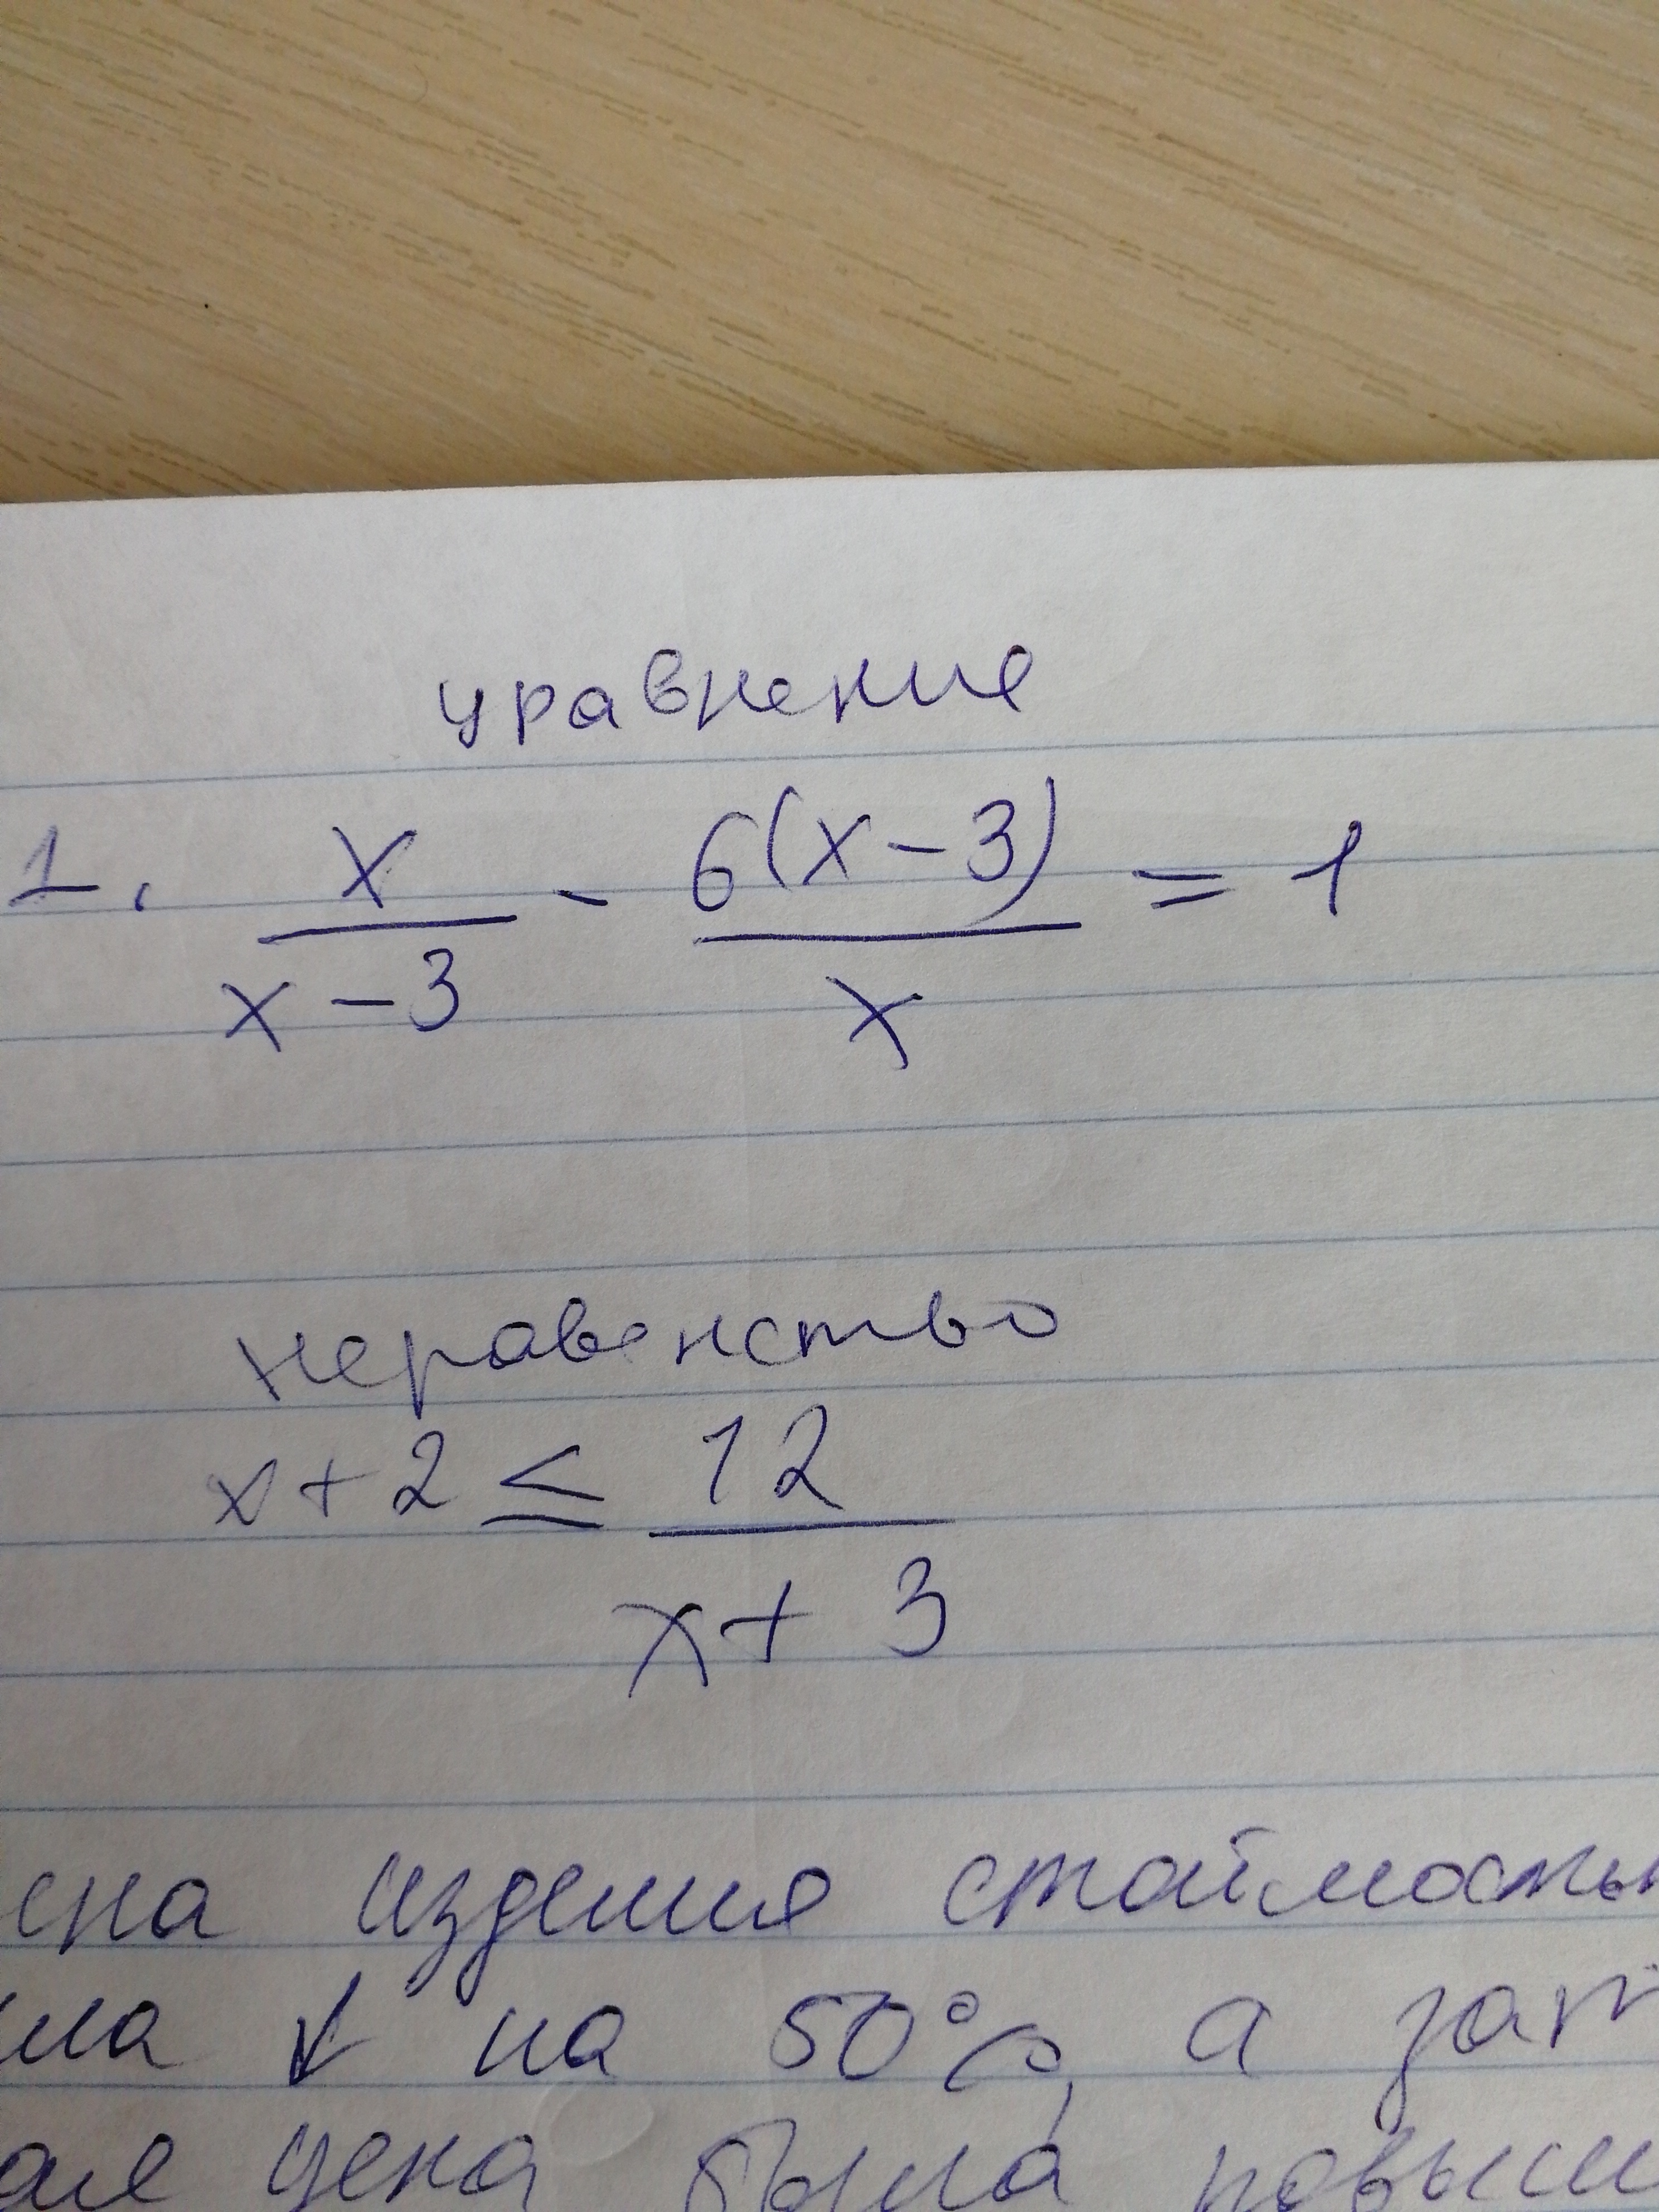 уравнение
1. x/(x-3) - 6(x-3)/x = 1
неравенство
x+2 ≤ 12/(x+3)
ена изделия стоймость
ила ↓ на 50%, а зат
ая цена была повыш